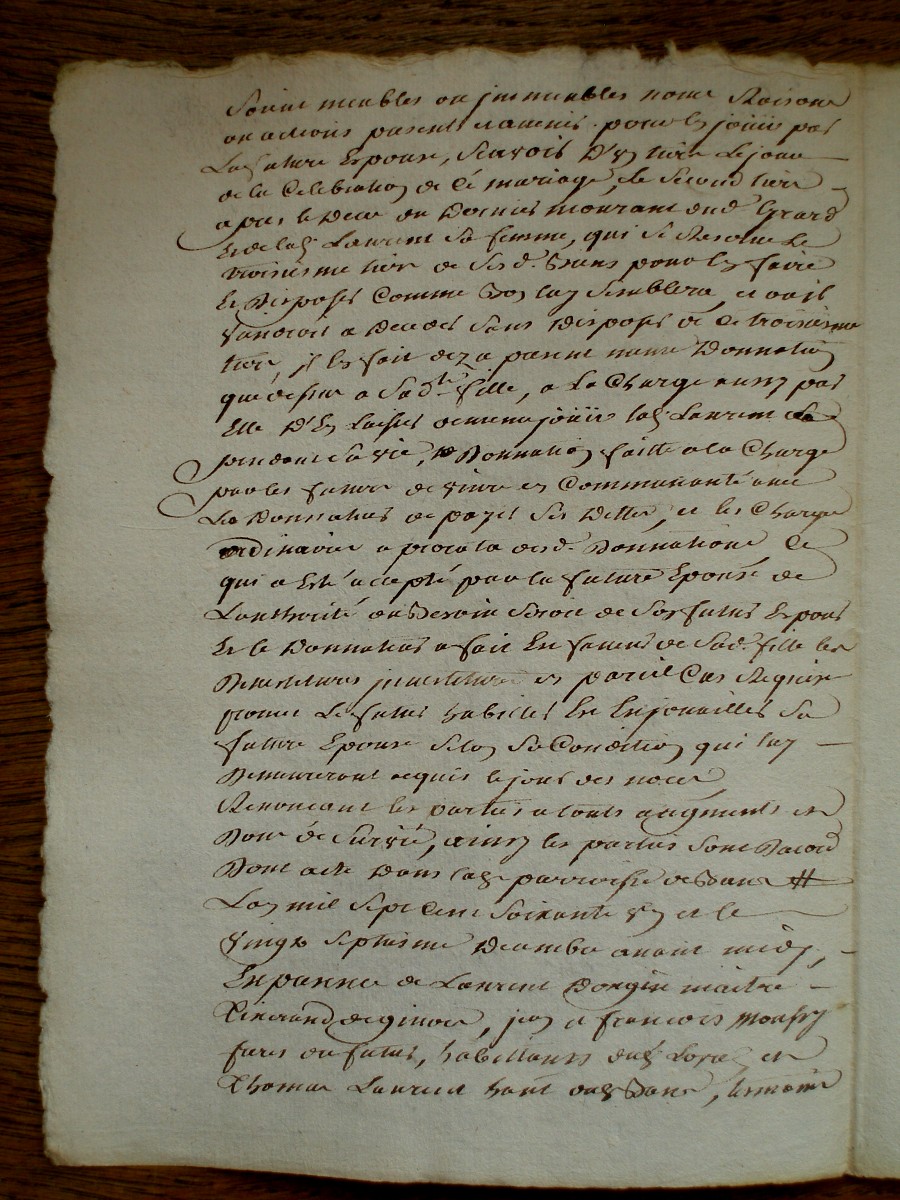 Soient meubles ou immeubles noms Raisons
ou actions presents et avenir. pour les jouir par
La future Epouse, Scavoir D'un tiers le jour
de la Celebration de Ce mariage, le Second tiers
apres le Deces du Dernier mourant dud. Gerard
Et de lad. Laurent Sa femme, qui Se Reserve Le
troisieme tiers de Sesd. Biens pour En faire
Et Disposer Comme Bon luy Semblera, et ou il
viendroit a Deceder Sans Disposer de Ce troisieme
tiers, il En fait deja pareille Donnation
que dessus a Sad.te fille, a La Charge aussy par
Elle D'En Laisser de meme jouir lad. Laurent
pendant Sa vie, Donnation faitte a la Charge
par les futurs de vivre en Communauté avec
Le Donnateur de payer Ses Dettes, et les Charges
ordinaires a prorata desd. Donnations Ce
qui a Eté accepté par la future Epouse de
L'authorité du Besoin Seroit de Son futur Epoux
Et le Donnateur a fait En faveur de Sad. fille les
Devestitures investitures en pareil Cas Requises
promet Le futur habiller Et Enjouailler Sa
future Epouse Selon Sa Condition qui luy
Demeureront acquis le jour des noces
Renoncent les parties a touts augments et
Dons de Survie, ainsy les parties Sont Dacord
Dont acte Dans lad. parroisse de
L'an mil Sept Cent Soixante un et le
vingt Septieme Decembre avant midy,
En presence de Laurent Dongin maitre
Tisserand de, jean et francois
freres du futur, habittants dud. et
Thomas Laurent hant dud., temoins